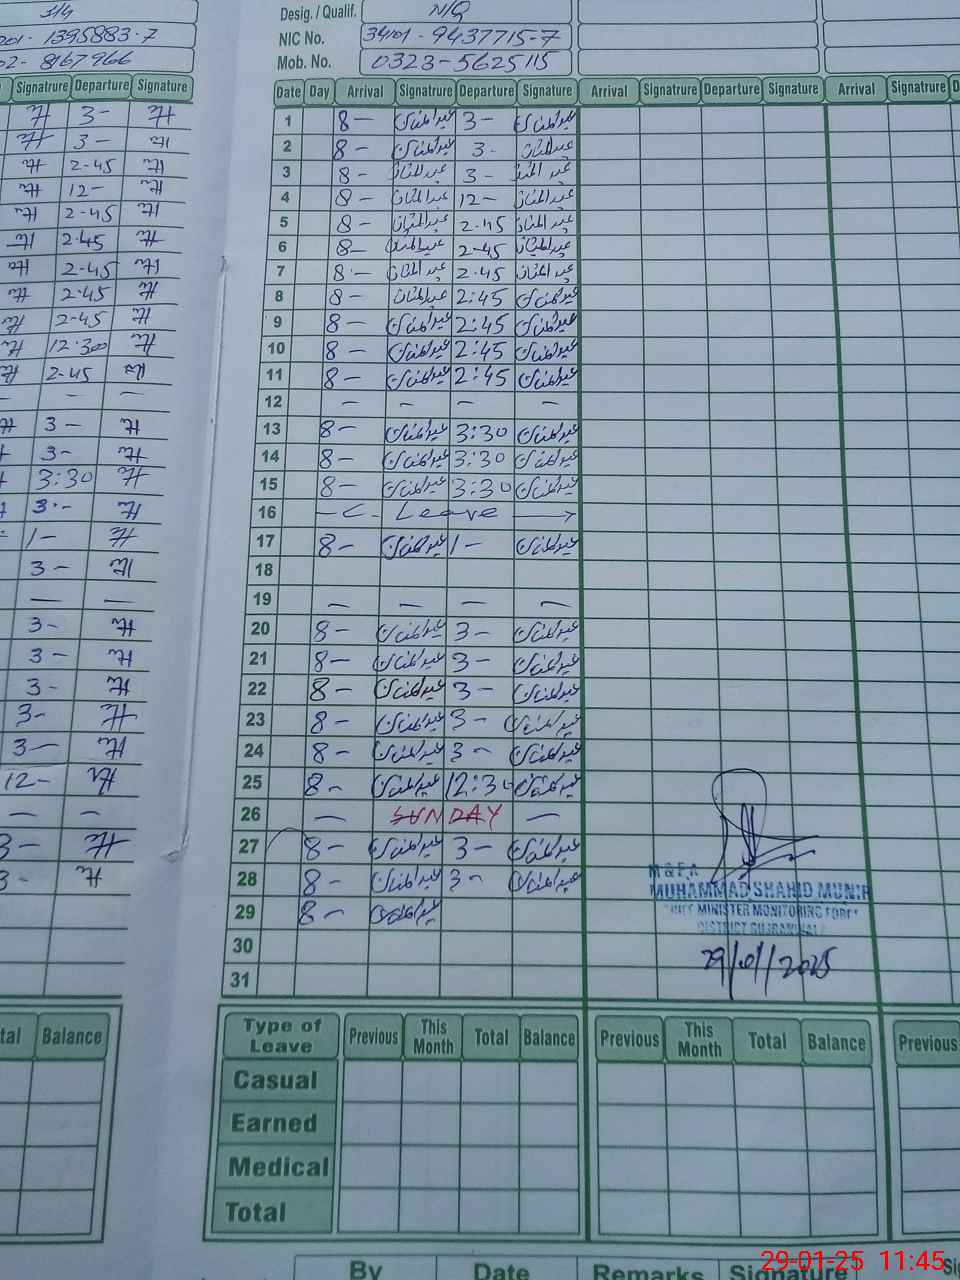 Desig. / Qualif. N/Q
NIC No. 34101-9437715-7
Mob. No. 0323-5625115
1395883-7
8167966
Signature Departure Signature
Date Day Arrival Signatrure Departure Signature Arrival Signatrure Departure Signature Arrival Signatrure
3-
3-
2-45
12-
2-45
2-45
2-45
2-45
2-45
12.300
2-45
— — —
3-
3-
3:30
3.-
1-
3-
— —
3-
3-
3-
3-
3-
12-
— —
3-
3-
1 8— عبدالمنان 3- عبدالمنان
2 8— عبدالمنان 3- عبدالمنان
3 8- عبدالمنان 3- عبدالمنان
4 8- عبدالمنان 12- عبدالمنان
5 8- عبدالمنان 2-45 عبدالمنان
6 8- عبدالمنان 2-45 عبدالمنان
7 8- عبدالمنان 2-45 عبدالمنان
8 8- عبدالمنان 2:45 عبدالمنان
9 8- عبدالمنان 2:45 عبدالمنان
10 8- عبدالمنان 2:45 عبدالمنان
11 8- عبدالمنان 2:45 عبدالمنان
12 — — — —
13 8- عبدالمنان 3:30 عبدالمنان
14 8- عبدالمنان 3:30 عبدالمنان
15 8- عبدالمنان 3:30 عبدالمنان
16 Leave
17 8- عبدالمنان 1- عبدالمنان
18
19 — — — —
20 8- عبدالمنان 3- عبدالمنان
21 8- عبدالمنان 3- عبدالمنان
22 8- عبدالمنان 3- عبدالمنان
23 8- عبدالمنان 3- عبدالمنان
24 8- عبدالمنان 3- عبدالمنان
25 8- عبدالمنان 12:30 عبدالمنان
26 — SUNDAY —
27 8- عبدالمنان 3- عبدالمنان
28 8- عبدالمنان 3- عبدالمنان
29 8- عبدالمنان
30
31
M & E.A
MUHAMMAD SHAHID MUNIR
MINISTER MONITORING FORCE
DISTRICT GUJRANWALA
29/01/2025
Balance
Type of Leave Previous This Month Total Balance Previous This Month Total Balance Previous
Casual
Earned
Medical
Total
By Date Remarks Signature
29-01-25 11:45